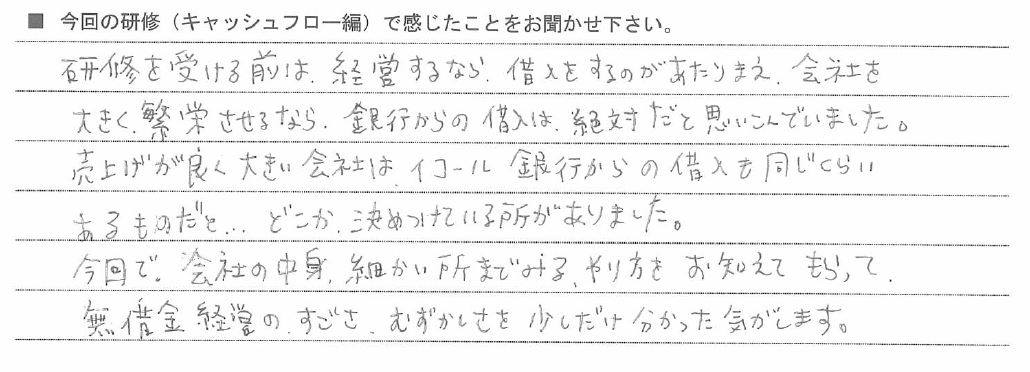 ■ 今回の研修（キャッシュフロー編）で感じたことをお聞かせ下さい。
研修を受ける前は、経営するなら、借入をするのがあたりまえ、会社を
大きく、繁栄させるなら、銀行からの借入は、絶対だと思いこんでいました。
売上げが良く大きい会社は、イコール 銀行からの借入も同じくらい
あるものだと… どこか、決めつけている所がありました。
今回で、会社の中身、細かい所までみる、やり方を お知えて もらって、
無借金経営の、すごさ、むずかしさを 少しだけ 分かった 気がします。